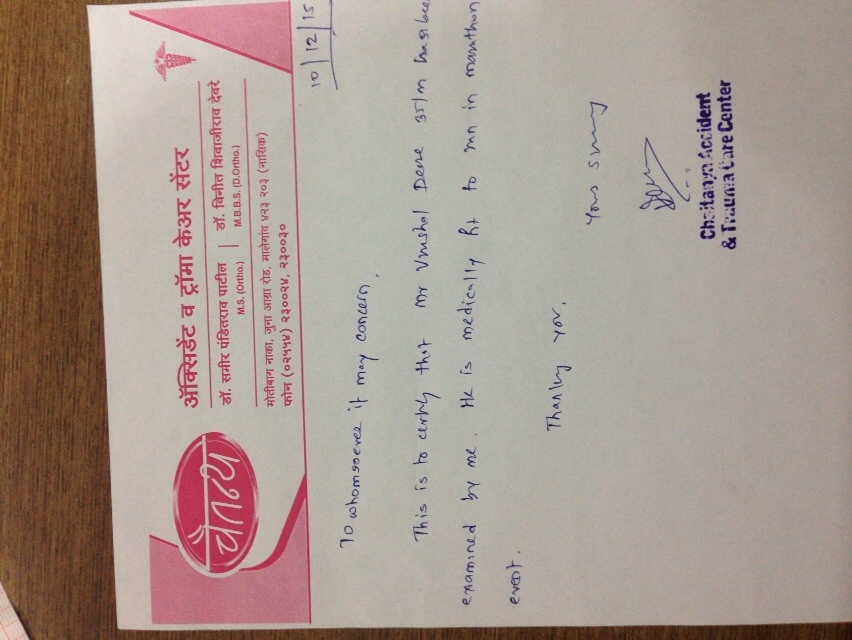 चैतन्य
ॲक्सिडेंट व ट्रॉमा केअर सेंटर
डॉ. समीर पंडितराव पाटील | डॉ. विनीत शिवाजीराव देवरे
M.S. (Ortho.) M.B.B.S. (D.Ortho.)
मोतीबाग नाका, जुना आग्रा रोड, मालेगांव ४२३ २०३ (नासिक)
फोन (०२५५४) २३००२४, २३००३०
10/12/15
To whomsoever it may concern,
This is to certify that mr Vmshal Deore 35/m has bee
examined by me. He is medically fit to run in marathon
event.
Thanking you,
Yours
Chaitanya Accident
& Trauma Care Center